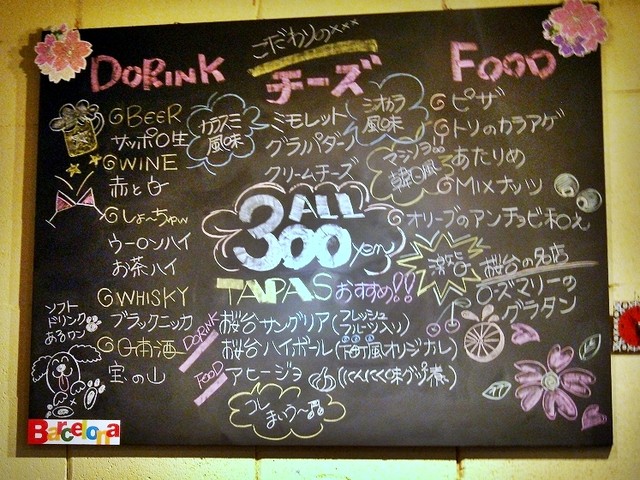 DORINK
◎BEER
サッポロ生
◎WINE
赤と白
◎しょ〜ちゅw
ウーロンハイ
お茶ハイ
◎WHISKY
ブラックニッカ
◎日本酒
宝の山
ソフト
ドリンク
あるワン
Barcelona
こだわりの×××
チーズ
カラスミ
風味
ミモレット
グラパダーノ
クリームチーズ
シオカラ
風味
マジョラ
韓国風
ALL
300yen
TAPASおすすめ!!
DORINK
桜台サングリア(フレッシュフルーツ入り)
桜台ハイボール(下町風オリジナル)
FOOD
アヒージョ(にんにく味グツグツ煮)
コレ
まいう〜♬
FOOD
◎ピザ
◎トリのカラアゲ
◎あたりめ
◎MIXナッツ
◎オリーブのアンチョビ和え
桜台の名店
ローズマリーの
グラタン